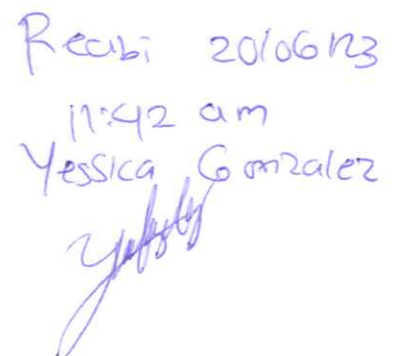 Recibi 20/06/23
11:42 am
Yessica Gonzalez